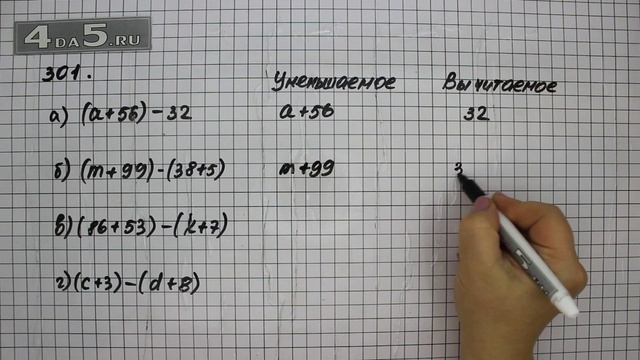 4DA5.RU
301.
Уменьшаемое Вычитаемое
а) (a+56)-32 a+56 32
б) (m+99)-(38+5) m+99 3
в) (86+53)-(k+7)
г) (c+3)-(d+8)